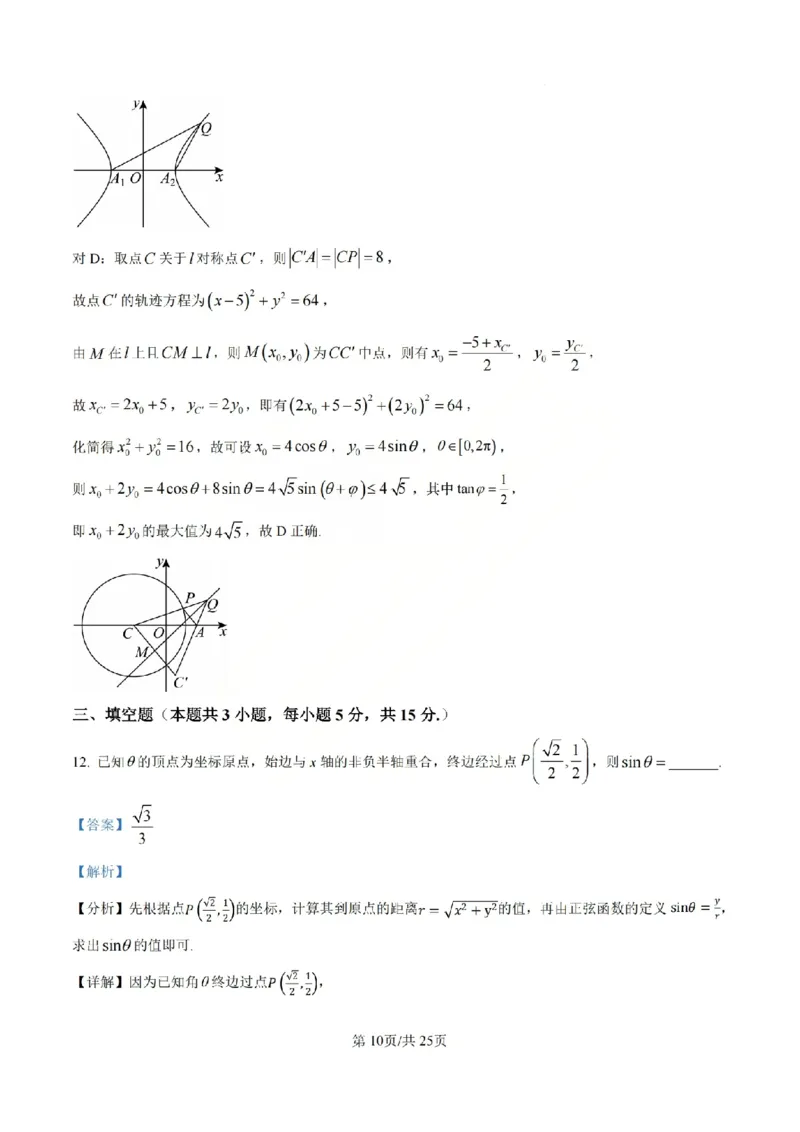 y
Q
A₁ O A₂ x
对 D：取点 C 关于 l 对称点 C′，则 |C′A| = |CP| = 8，
故点 C′ 的轨迹方程为 (x−5)² + y² = 64，
由 M 在 l 上且 CM ⊥ l，则 M(x₀, y₀) 为 CC′ 中点，则有 x₀ = (−5 + x_C′)/2，y₀ = y_C′/2，
故 x_C′ = 2x₀ + 5，y_C′ = 2y₀，即有 (2x₀ + 5 − 5)² + (2y₀)² = 64，
化简得 x₀² + y₀² = 16，故可设 x₀ = 4cosθ，y₀ = 4sinθ，θ∈[0,2π)，
则 x₀ + 2y₀ = 4cosθ + 8sinθ = 4√5 sin(θ + φ) ≤ 4√5，其中 tanφ = 1/2，
即 x₀ + 2y₀ 的最大值为 4√5，故 D 正确.
y
P Q
C O A x
M
C′
三、填空题（本题共 3 小题，每小题 5 分，共 15 分.）
12. 已知 θ 的顶点为坐标原点，始边与 x 轴的非负半轴重合，终边经过点 P(√2/2, 1/2)，则 sinθ = ______.
【答案】√3/3
【解析】
【分析】先根据点P(√2/2, 1/2)的坐标，计算其到原点的距离r = √(x² + y²)的值，再由正弦函数的定义 sinθ = y/r，
求出 sinθ 的值即可.
【详解】因为已知角 θ 终边过点P(√2/2, 1/2)，
第 10页/共 25页